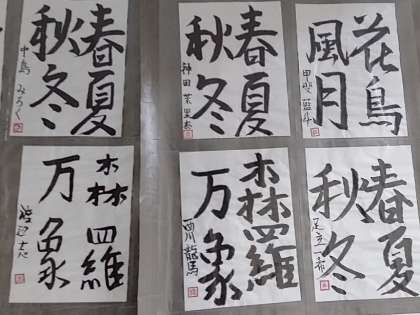 春夏
秋冬
中島 みろく
春夏
秋冬
神田
花鳥
風月
甲斐
森羅
万象
森羅
万象
西川 龍馬
春夏
秋冬
足立